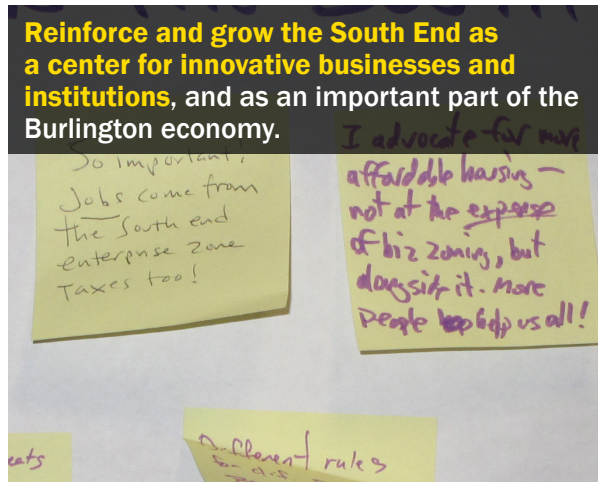 Reinforce and grow the South End as
a center for innovative businesses and
institutions, and as an important part of the
Burlington economy.
So important!
Jobs come from
the South end
enterprise zone
Taxes too!
I advocate for more
affordable housing –
not at the expense
of biz zoning, but
alongside it. More
people help us all!
Different rules
for